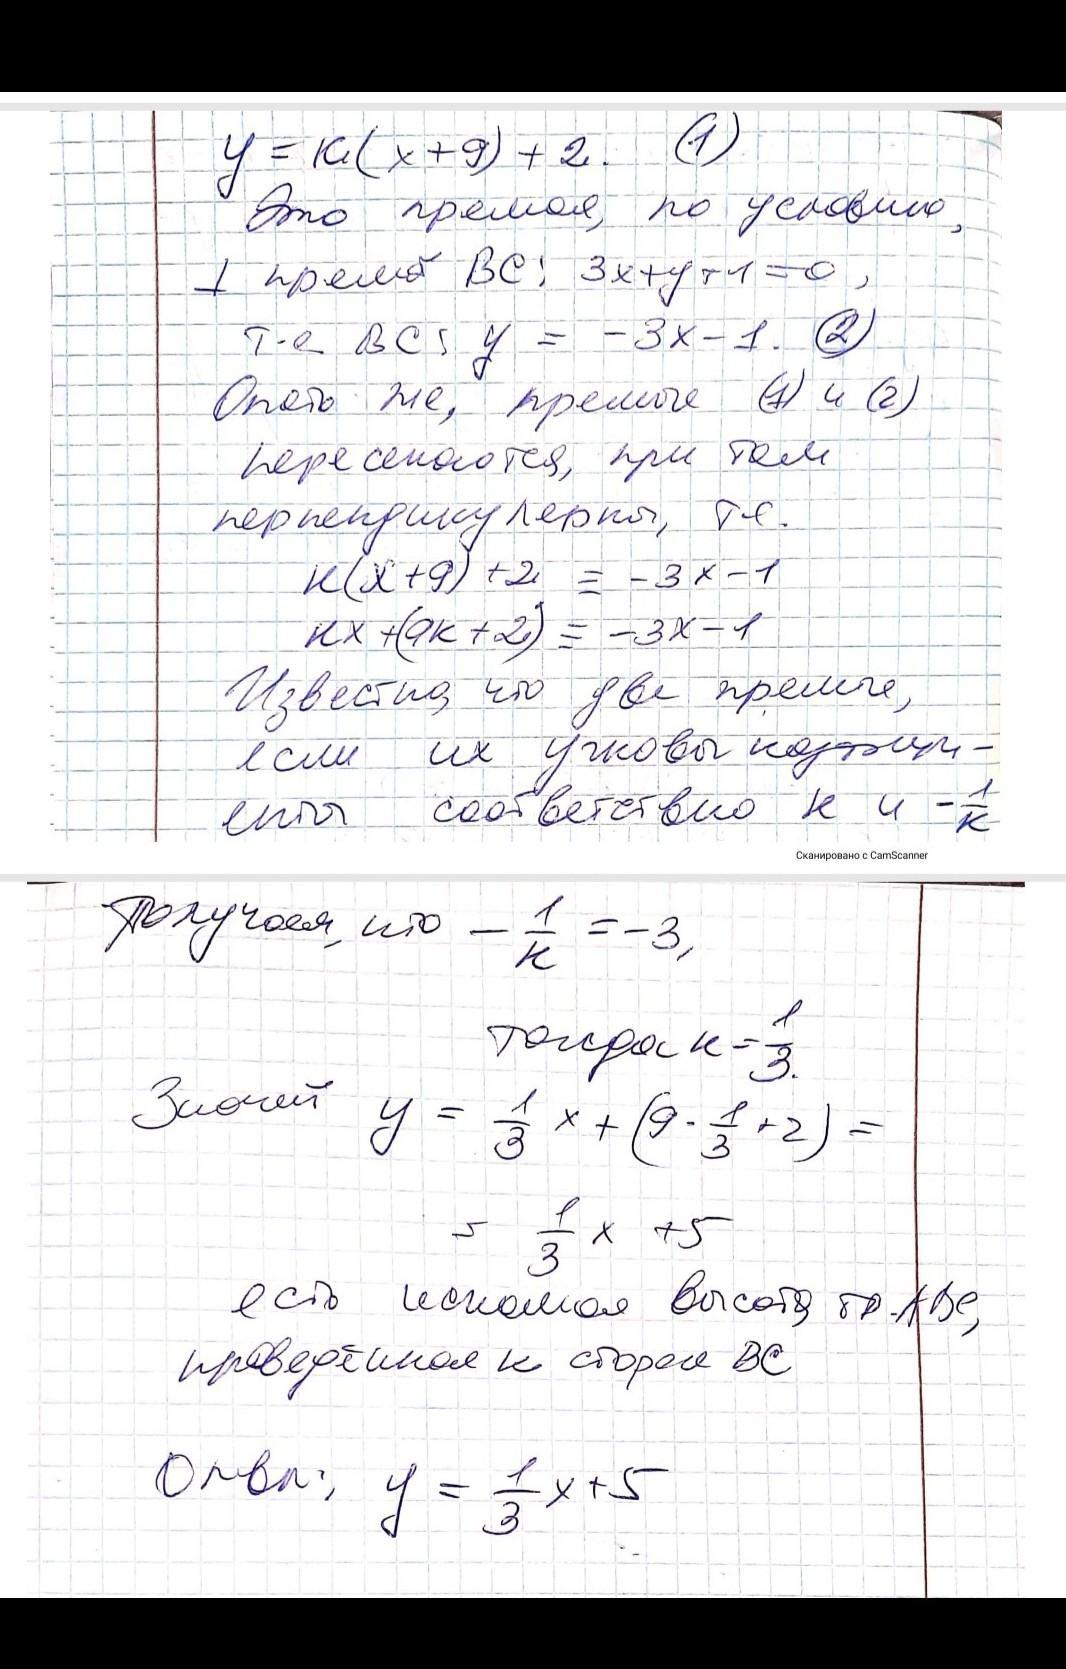 y = к(x+9)+2. (1)
Это прямая, по условию,
⊥ прямой BC: 3x+y+1=0,
т.е. BC: y = -3x-1. (2)
Опять же, прямые (1) и (2)
пересекаются, при том
перпендикулярны, т.е.
к(x+9)+2 = -3x-1
кx+(9к+2) = -3x-1
Известно, что две прямые,
если их угловы коэффици-
енты соответственно к и -1/к
Сканировано с CamScanner
Получаем, что -1/к = -3,
тогда к = 1/3.
Значит y = 1/3 x + (9 · 1/3 + 2) =
= 1/3 x + 5
есть искомая высота тр. ABC,
проведённая к стороне BC
Ответ: y = 1/3 x + 5